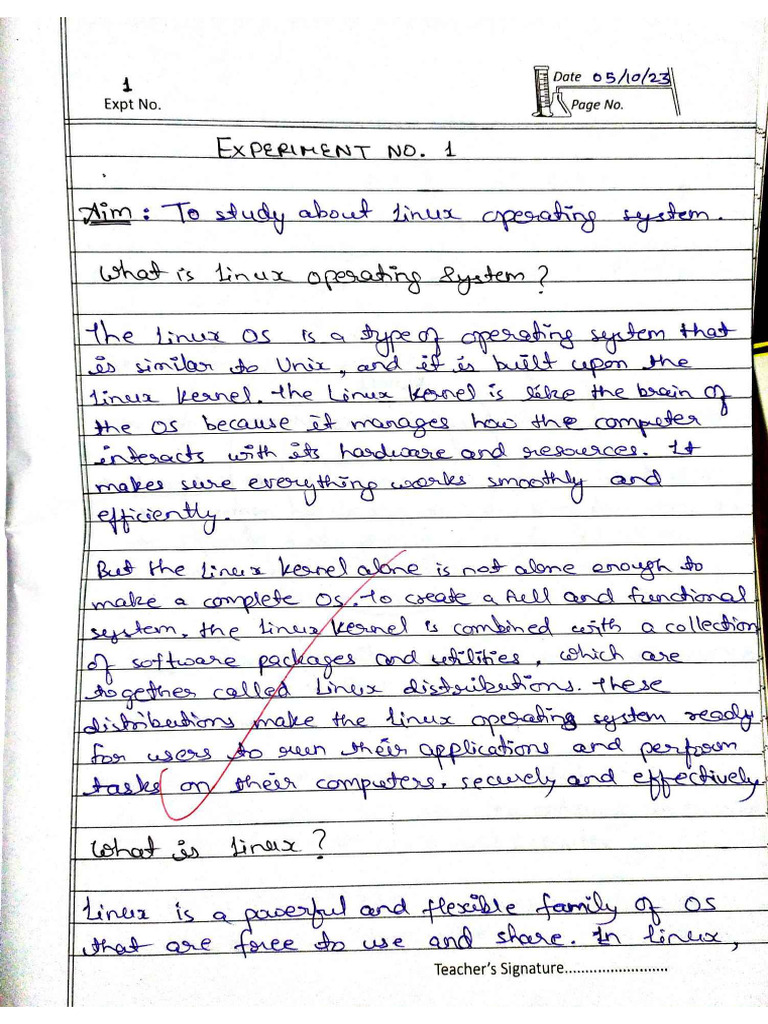 1
Expt No.
Date 05/10/23
Page No.
EXPERIMENT NO. 1
Aim : To study about Linux operating system.
What is Linux operating System?
The Linux OS is a type of operating system that
is similar to Unix, and it is built upon the
Linux Kernel. The Linux Kernel is like the brain of
the OS because it manages how the computer
interacts with its hardware and resources. It
makes sure everything works smoothly and
efficiently.
But the Linux Kernel alone is not alone enough to
make a complete OS. To create a full and functional
system, the Linux Kernel is combined with a collection
of software packages and utilities, which are
together called Linux distributions. These
distributions make the Linux operating system ready
for users to run their applications and perform
tasks on their computers, securely and effectively
What is Linux?
Linux is a powerful and flexible family of OS
that are free to use and share. In Linux,
Teacher's Signature..........................